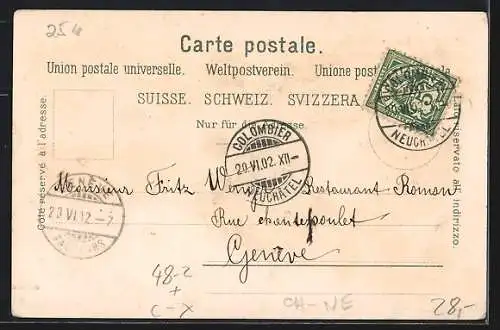 25
Carte postale.
Union postale universelle. Weltpostverein. Unione postale
SUISSE. SCHWEIZ. SVIZZERA.
Nur für die Adresse.
Côté réservé à l'adresse.
Lato riservato all' indirizzo.
NEUCHATEL
COLOMBIER
29.VI.02.XII-
NEUCHÂTEL
Monsieur Fritz Restaurant Romand
Rue chantepoulet
Genève
GENÈVE
29.VI.02.-7
48-2
+
C-X
CH-NE
28,-